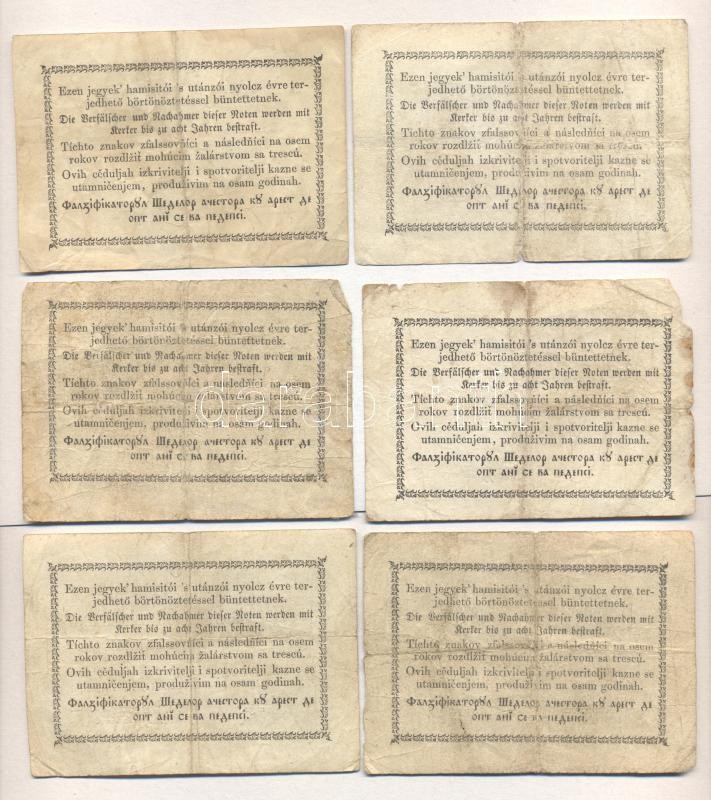 Ezen jegyek' hamisitói 's utánzói nyolcz évre ter-
jedhető börtönöztetéssel büntettetnek.
Die Verfälscher und Nachahmer dieser Noten werden mit
Kerker bis zu acht Jahren bestraft.
Tichto znakov zfalssovňíci a následňíci na osem
rokov rozdlžiť mohúcim žalárstvom sa trescú.
Ovih céduljah izkrivitelji i spotvoritelji kazne se
utamničenjem, produživim na osam godinah.
Фалзіфікаторꙋл Шеделор ачестора кꙋ арест де
опт анї се ва педепсі.
Ezen jegyek' hamisitói 's utánzói nyolcz évre ter-
jedhető börtönöztetéssel büntettetnek.
Die Verfälscher und Nachahmer dieser Noten werden mit
Kerker bis zu acht Jahren bestraft.
Tichto znakov zfalssovňíci a následňíci na osem
rokov rozdlžiť mohúcim žalárstvom sa trescú.
Ovih céduljah izkrivitelji i spotvoritelji kazne se
utamničenjem, produživim na osam godinah.
Фалзіфікаторꙋл Шеделор ачестора кꙋ арест де
опт анї се ва педепсі.
Ezen jegyek' hamisitói 's utánzói nyolcz évre ter-
jedhető börtönöztetéssel büntettetnek.
Die Verfälscher und Nachahmer dieser Noten werden mit
Kerker bis zu acht Jahren bestraft.
Tichto znakov zfalssovňíci a následňíci na osem
rokov rozdlžiť mohúcim žalárstvom sa trescú.
Ovih céduljah izkrivitelji i spotvoritelji kazne se
utamničenjem, produživim na osam godinah.
Фалзіфікаторꙋл Шеделор ачестора кꙋ арест де
опт анї се ва педепсі.
Ezen jegyek' hamisitói 's utánzói nyolcz évre ter-
jedhető börtönöztetéssel büntettetnek.
Die Verfälscher und Nachahmer dieser Noten werden mit
Kerker bis zu acht Jahren bestraft.
Tichto znakov zfalssovňíci a následňíci na osem
rokov rozdlžiť mohúcim žalárstvom sa trescú.
Ovih céduljah izkrivitelji i spotvoritelji kazne se
utamničenjem, produživim na osam godinah.
Фалзіфікаторꙋл Шеделор ачестора кꙋ арест де
опт анї се ва педепсі.
Ezen jegyek' hamisitói 's utánzói nyolcz évre ter-
jedhető börtönöztetéssel büntettetnek.
Die Verfälscher und Nachahmer dieser Noten werden mit
Kerker bis zu acht Jahren bestraft.
Tichto znakov zfalssovňíci a následňíci na osem
rokov rozdlžiť mohúcim žalárstvom sa trescú.
Ovih céduljah izkrivitelji i spotvoritelji kazne se
utamničenjem, produživim na osam godinah.
Фалзіфікаторꙋл Шеделор ачестора кꙋ арест де
опт анї се ва педепсі.
Ezen jegyek' hamisitói 's utánzói nyolcz évre ter-
jedhető börtönöztetéssel büntettetnek.
Die Verfälscher und Nachahmer dieser Noten werden mit
Kerker bis zu acht Jahren bestraft.
Tichto znakov zfalssovňíci a následňíci na osem
rokov rozdlžiť mohúcim žalárstvom sa trescú.
Ovih céduljah izkrivitelji i spotvoritelji kazne se
utamničenjem, produživim na osam godinah.
Фалзіфікаторꙋл Шеделор ачестора кꙋ арест де
опт анї се ва педепсі.